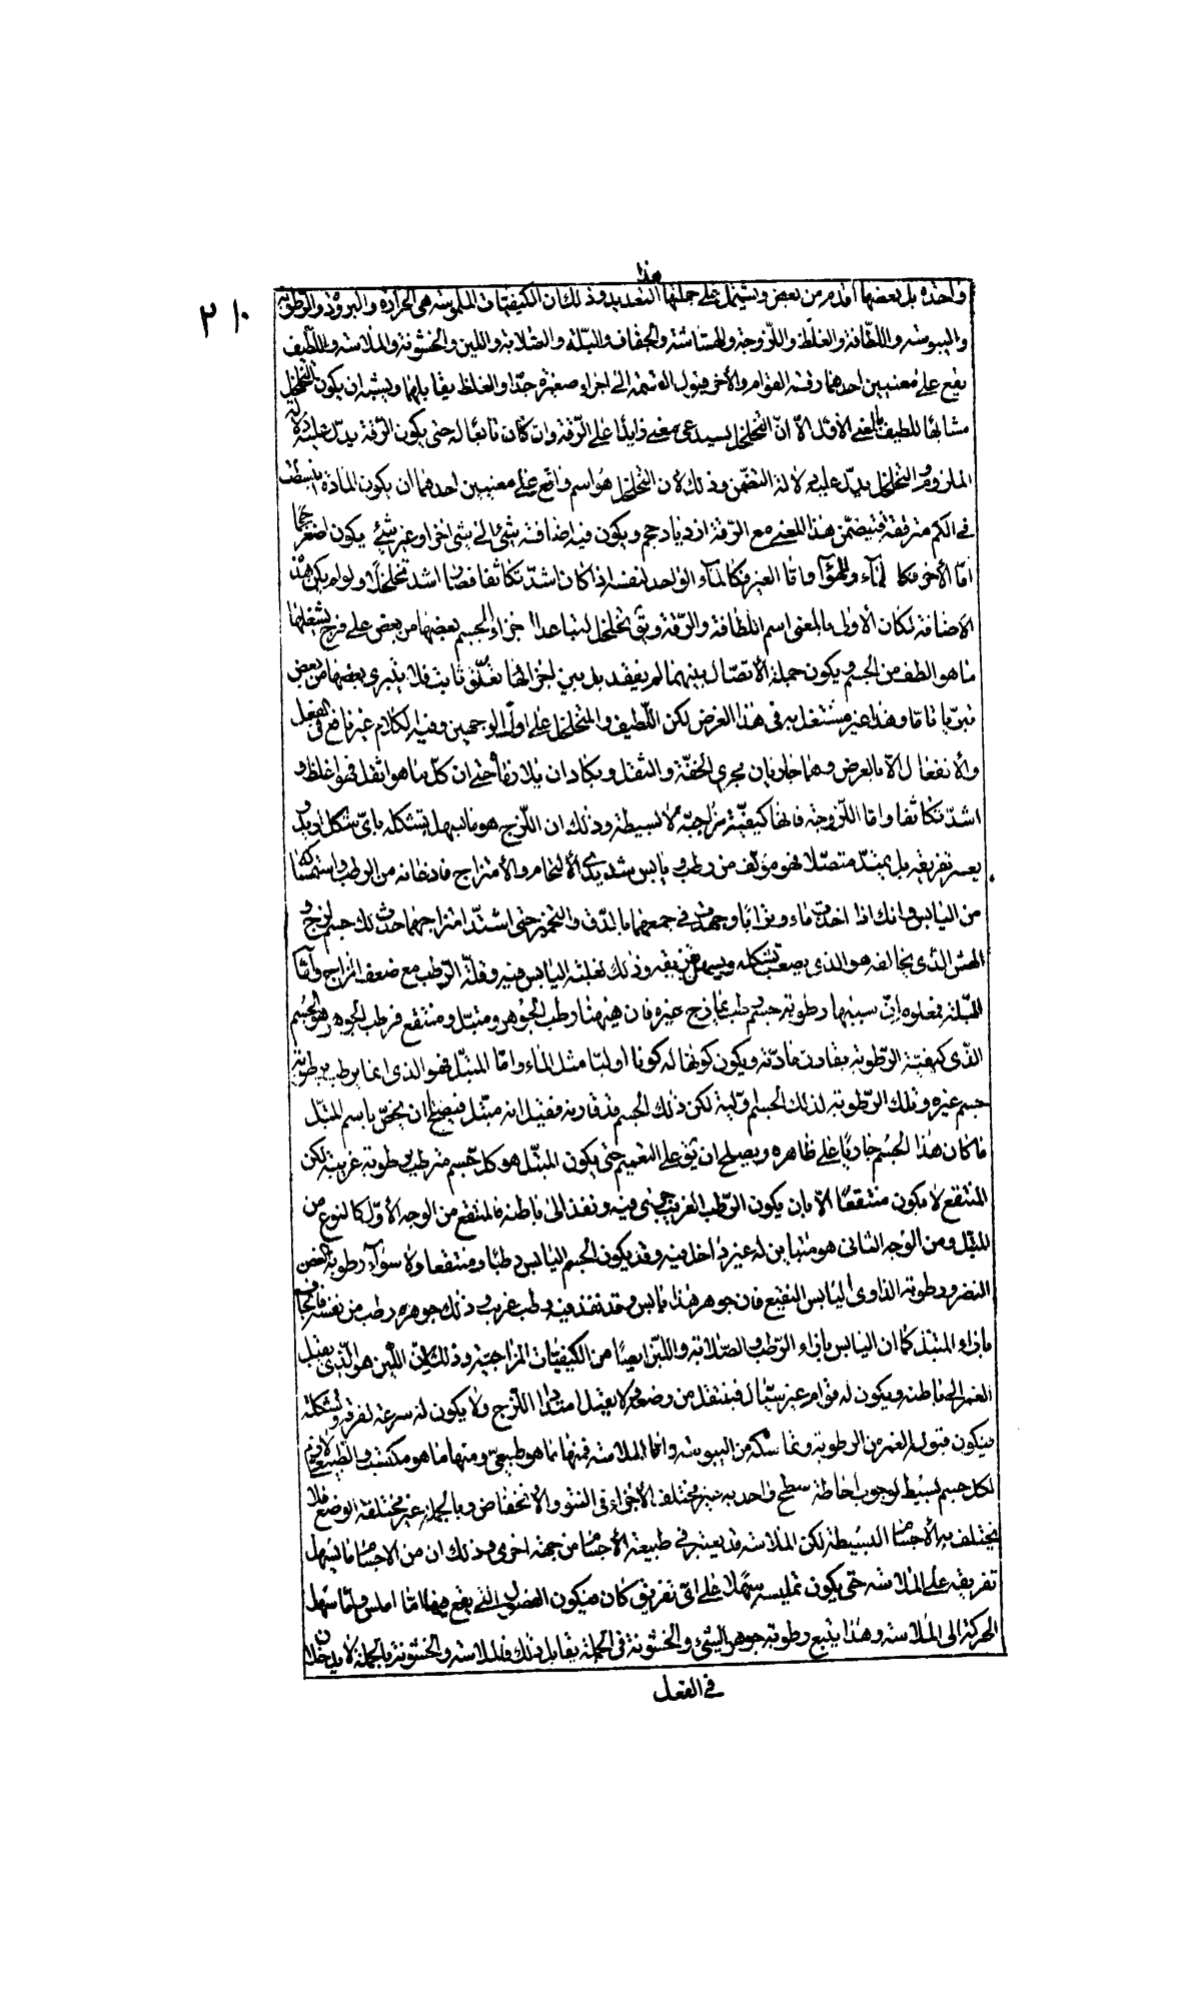 هذا
واحدة بل بعضها اقدم من بعض ويشتمل على جملتها التعديد وذلك ان الكيفيات الملموسة هى الحرارة والبرودة والرطوبة
٢١٠
واليبوسة واللطافة والغلظ واللزوجة والهشاشة والجفاف والبلة والصلابة واللين والخشونة والملاسة واللطيف
يقع على معنيين احدهما رقة القوام والأخر قبول القسمة الى اجزاء صغيرة جدا والغلظ يقابلهما ويشبه ان يكون التخلخل
مشابها للطيف بالمعنى الأول الا ان التخلخل يستدعى معنى زايدا على الرقة وان كان تابعا له حتى يكون الرقة يدل عليه دلالة
الملزوم والتخلخل يدل عليه دلالة التضمن وذلك لان التخلخل هو اسم واقع على معنيين احدهما ان يكون المادة انبسطت
فى الكم مترققة فيتضمن هذا المعنى مع الرقة ازدياد حجم ويكون فيه اضافة شئ الى شئ اخر او غير شئ يكون اصغر حجما
اما الأخر فكالماء والهواء واما الغير فكالماء الواحد نفسه اذا كان اشد تكاثفا فصار اشد تخلخلا ولو لم يكن هذه
الاضافة لكان الأولى بالمعنى اسم اللطافة والرقة ويق تخلخل لتباعد اجزاء الجسم بعضها من بعض على فرج يشغلها
ما هو الطف من الجسم ويكون جملة الأتصال بينهما لم يفقد بل بين اجزائها تعلق ثابت فلا يتبرى بعضها من بعض
تبريا تاما وهذا غير مشتغل به فى هذا الغرض لكن اللطيف والمتخلخل على اول الوجهين وفيه الكلام غير نافع فى الفعل
والأنفعال الا بالعرض وهما جاريان مجرى الخفة والثقل ويكاد ان يتلازما حتى ان كل ما هو اثقل فهو اغلظ و
اشد تكاثفا واما اللزوجة فانها كيفية مزاجية لا بسيطة وذلك ان اللزج هو ما يسهل تشكله باى شكل اريد و
يعسر تفريقه بل يمتد متصلا فهو مؤلف من رطب ويابس شديدى الألتحام والأمتزاج فاذعانه من الرطب واستمساكه
من اليابس وانك اذا اخذت ماء وترابا وجهدت فى جمعهما بالدق والتخمير حتى اشتد امتزاجهما حدث لك جسم لزج و
الهش الذى يخالفه هو الذى يصعب تشكله ويسهل تفريقه وذلك لغلبة اليابس فيه وقلة الرطب مع ضعف المزاج واما
البلة فمعلوم ان سببها رطوبة جسم رطب يمازج غيره فان هيهنا رطب الجوهر ومبتل ومنتقع فرطب الجوهر هو الجسم
الذى كيفية الرطوبة يقارن مادته ويكون كونها له كونا اوليا مثل الماء واما المبتل فهو الذى انما يرطب برطوبة
جسم غيره وتلك الرطوبة لذلك الجسم اولية لكن ذلك الجسم قد قارنه فقيل انه مبتل فيصلح ان يخص باسم المبتل
ما كان هذا الجسم جاريا على ظاهره ويصلح ان يق على التعميم حتى يكون المبتل هو كل جسم مترطب برطوبة غريبة لكن
المنتقع لا يكون منتقعا الا بان يكون الرطب الغريب جرى فيه ونفذ الى باطنه فالمنتقع من الوجه الأول كالنوع من
المبتل ومن الوجه الثانى هو مباين له غير داخل فيه وقد يكون الجسم اليابس رطبا ومنتقعا ولا سواء رطوبة الغصن
النضر ورطوبة الذاوى اليابس النقيع فان جوهر هذا يابس وقد نفذ فيه رطب غريب وذلك جوهره رطب من نفسه فالجاف
بازاء المبتل كما ان اليابس بازاء الرطب والصلابة واللين ايضا من الكيفيات المزاجية وذلك لان اللين هو الذى يقبل
الغمز الى باطنه ويكون له قوام غير سيال فينتقل من وضعه ولا يقبل امتداد اللزج ولا يكون له سرعة تفرقه وتشكله
فيكون قبوله الغمز من الرطوبة وتماسكه من اليبوسة واما الملاسة فمنها ما هو طبيعى ومنها ما هو مكتسب والطبيعى لازم
لكل جسم بسيط لوجوب احاطة سطح واحد به غير مختلف الأجزاء فى النتو والانخفاض وبالجملة غير مختلفة الوضع فلا
يختلف به الأجسام البسيطة لكن الملاسة قد يعتبر فى طبيعة الأجسام من جهة اخرى وذلك ان من الاجسام ما يسهل
تفريقه على الملاسة حتى يكون تمليسه سهلا على اى تفريق كان فيكون الفصول التى يقع فيها اما املس واما سهل
الحركة الى الملاسة وهذا يتبع رطوبة جوهر الشئ والخشونة فى الجملة يقابل ذلك فالملاسة والخشونة بالجملة لا يدخلان
فى الفعل